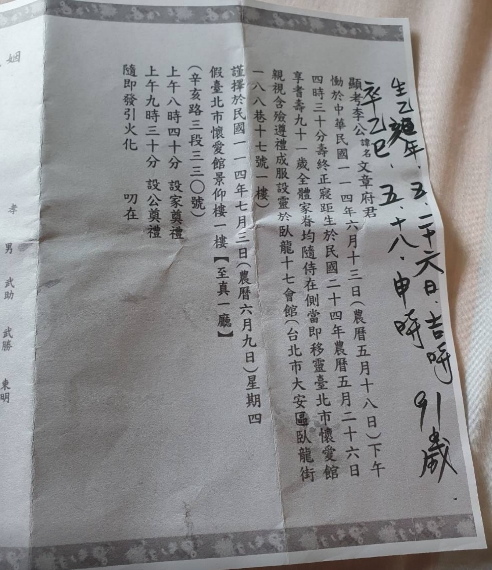 生乙亥年、五、二十六日、吉時 91歲
卒乙巳、五、十八、申時
顯考李公諱名文章府君
慟於中華民國一一四年六月十三日(農曆五月十八日)下午
四時三十分壽終正寢距生於民國二十四年農曆五月二十六日
享耆壽九十一歲全體家眷均隨侍在側當即移靈臺北市懷愛館
親視含殮遵禮成服設靈於臥龍十七會館(台北市大安區臥龍街
一八八巷十七號一樓)
謹擇於民國一一四年七月三日(農曆六月九日)星期四
假臺北市懷愛館景仰樓一樓【至真一廳】
(辛亥路三段三三○號)
上午八時四十分 設家奠禮
上午九時三十分 設公奠禮
隨即發引火化 叨在
姻
孝 男 武助 武勝 東明